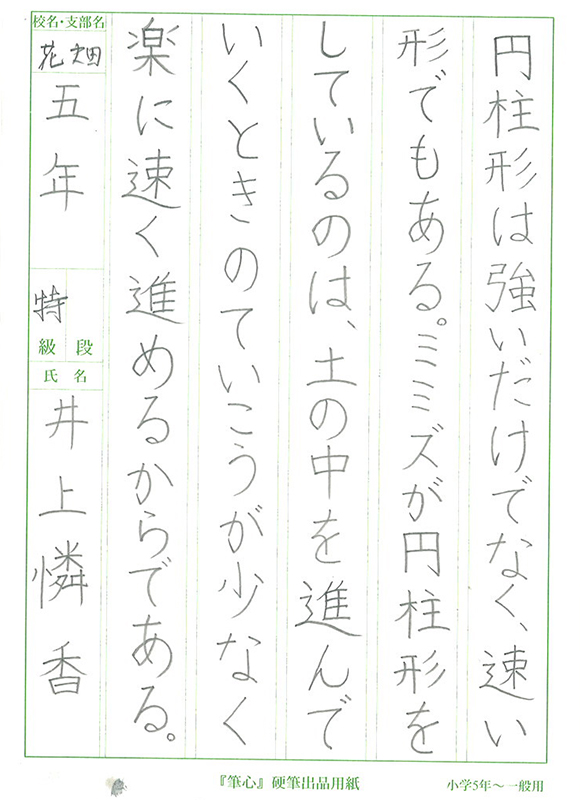 円柱形は強いだけでなく、速い
形でもある。ミミズが円柱形を
しているのは、土の中を進んで
いくときのていこうが少なく
楽に速く進めるからである。
校名・支部名
花畑
五年
特
級 段
氏名
井上憐香
『筆心』硬筆出品用紙
小学5年〜一般用